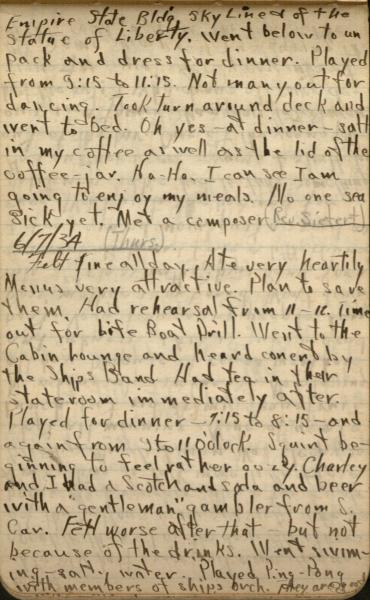 Empire State Bldg, Sky Line & of the
Statue of Liberty. Went below to un
pack and dress for dinner. Played
from 9:15 to 11:15. Not many out for
dancing. Took turn around deck and
went to bed. Oh yes - at dinner - salt
in my coffee as well as the lid of the
coffee-jar. Ha-Ha. I can see I am
going to enjoy my meals. No one sea
sick yet. Met a composer
6/7/34 (Thurs.)
Felt fine all day. Ate very heartily
Menus very attractive. Plan to save
them. Had rehearsal from 11-12. Time
out for Life Boat Drill. Went to the
Cabin Lounge and heard concert by
the Ships Band Had tea in their
stateroom immediately after.
Played for dinner - 7:15 to 8:15 - and
again from 9 to 11 Oclock. Squint be-
ginning to feel rather oozy. Charley
and I had a Scotch and soda and beer
with a "gentleman" gambler from S.
Car. Felt worse after that - but not
because of the drinks. Went swim-
ing - salty water. Played Ping-Pong
with members of ships orch. They are